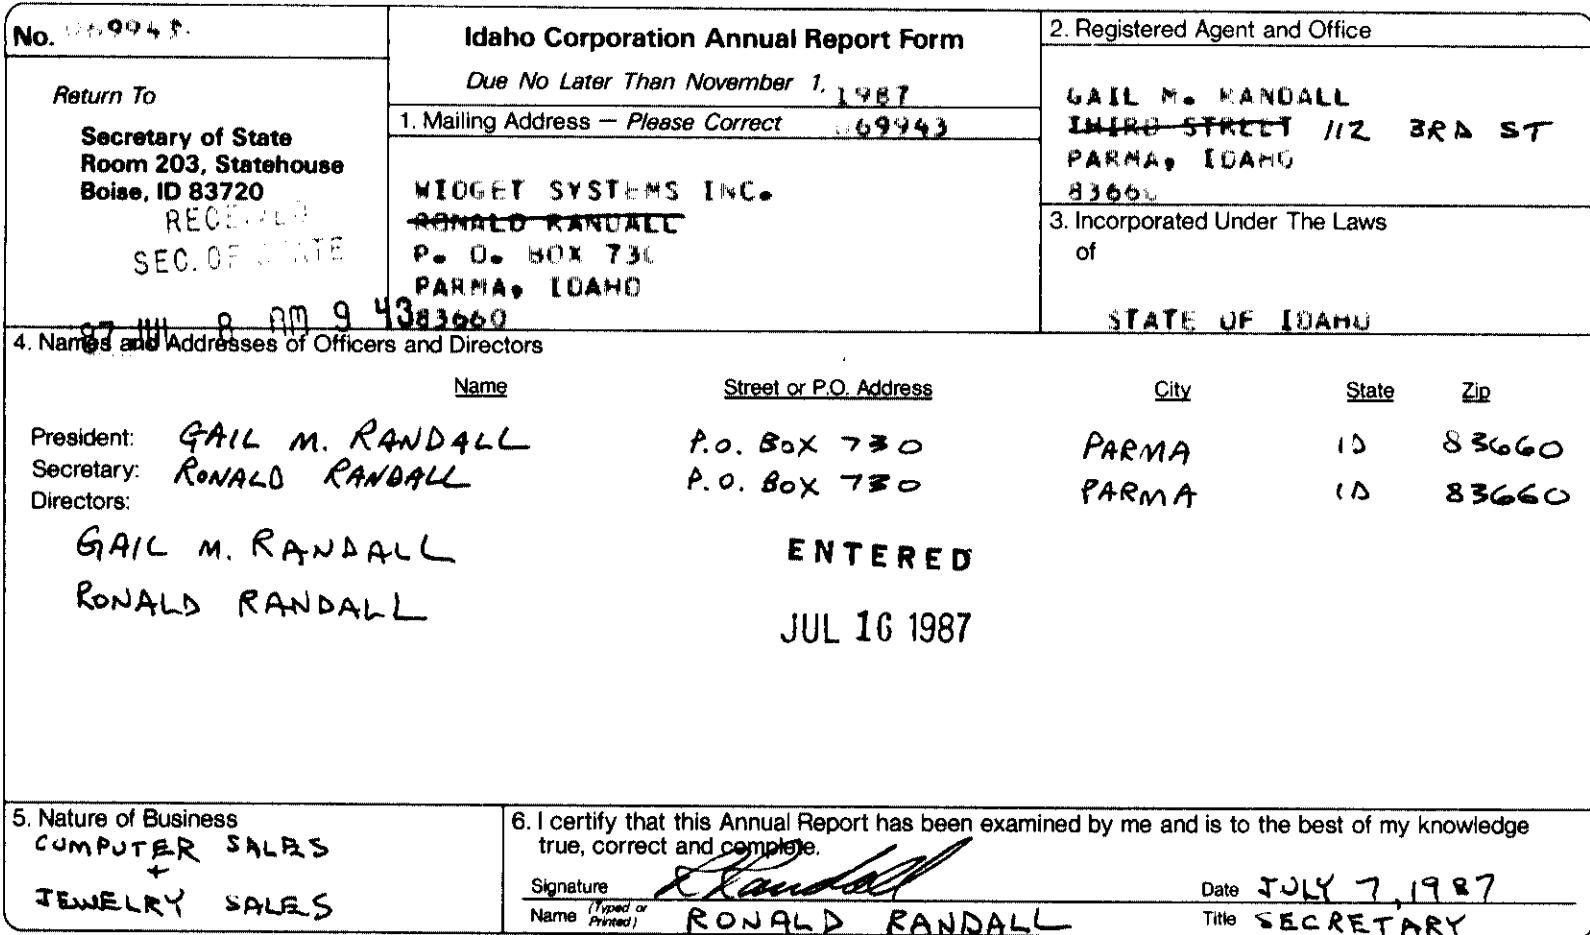 No. 069943
Return To
Secretary of State
Room 203, Statehouse
Boise, ID 83720
RECEIVED
SEC. OF STATE
87 JUL 8 AM 9 43
Idaho Corporation Annual Report Form
Due No Later Than November 1, 1987
1. Mailing Address — Please Correct 069943
WIDGET SYSTEMS INC.
RONALD RANDALL
P. O. BOX 730
PARMA, IDAHO
83660
2. Registered Agent and Office
GAIL M. RANDALL
THIRD STREET 112 3RD ST
PARMA, IDAHO
83660
3. Incorporated Under The Laws
of
STATE OF IDAHO
4. Names and Addresses of Officers and Directors
Name Street or P.O. Address City State Zip
President: GAIL M. RANDALL P.O. BOX 730 PARMA ID 83660
Secretary: RONALD RANDALL P.O. BOX 730 PARMA ID 83660
Directors:
GAIL M. RANDALL
RONALD RANDALL
ENTERED
JUL 16 1987
5. Nature of Business
COMPUTER SALES
+
JEWELRY SALES
6. I certify that this Annual Report has been examined by me and is to the best of my knowledge
true, correct and complete.
Signature R Randall Date JULY 7, 1987
Name (Typed or Printed) RONALD RANDALL Title SECRETARY